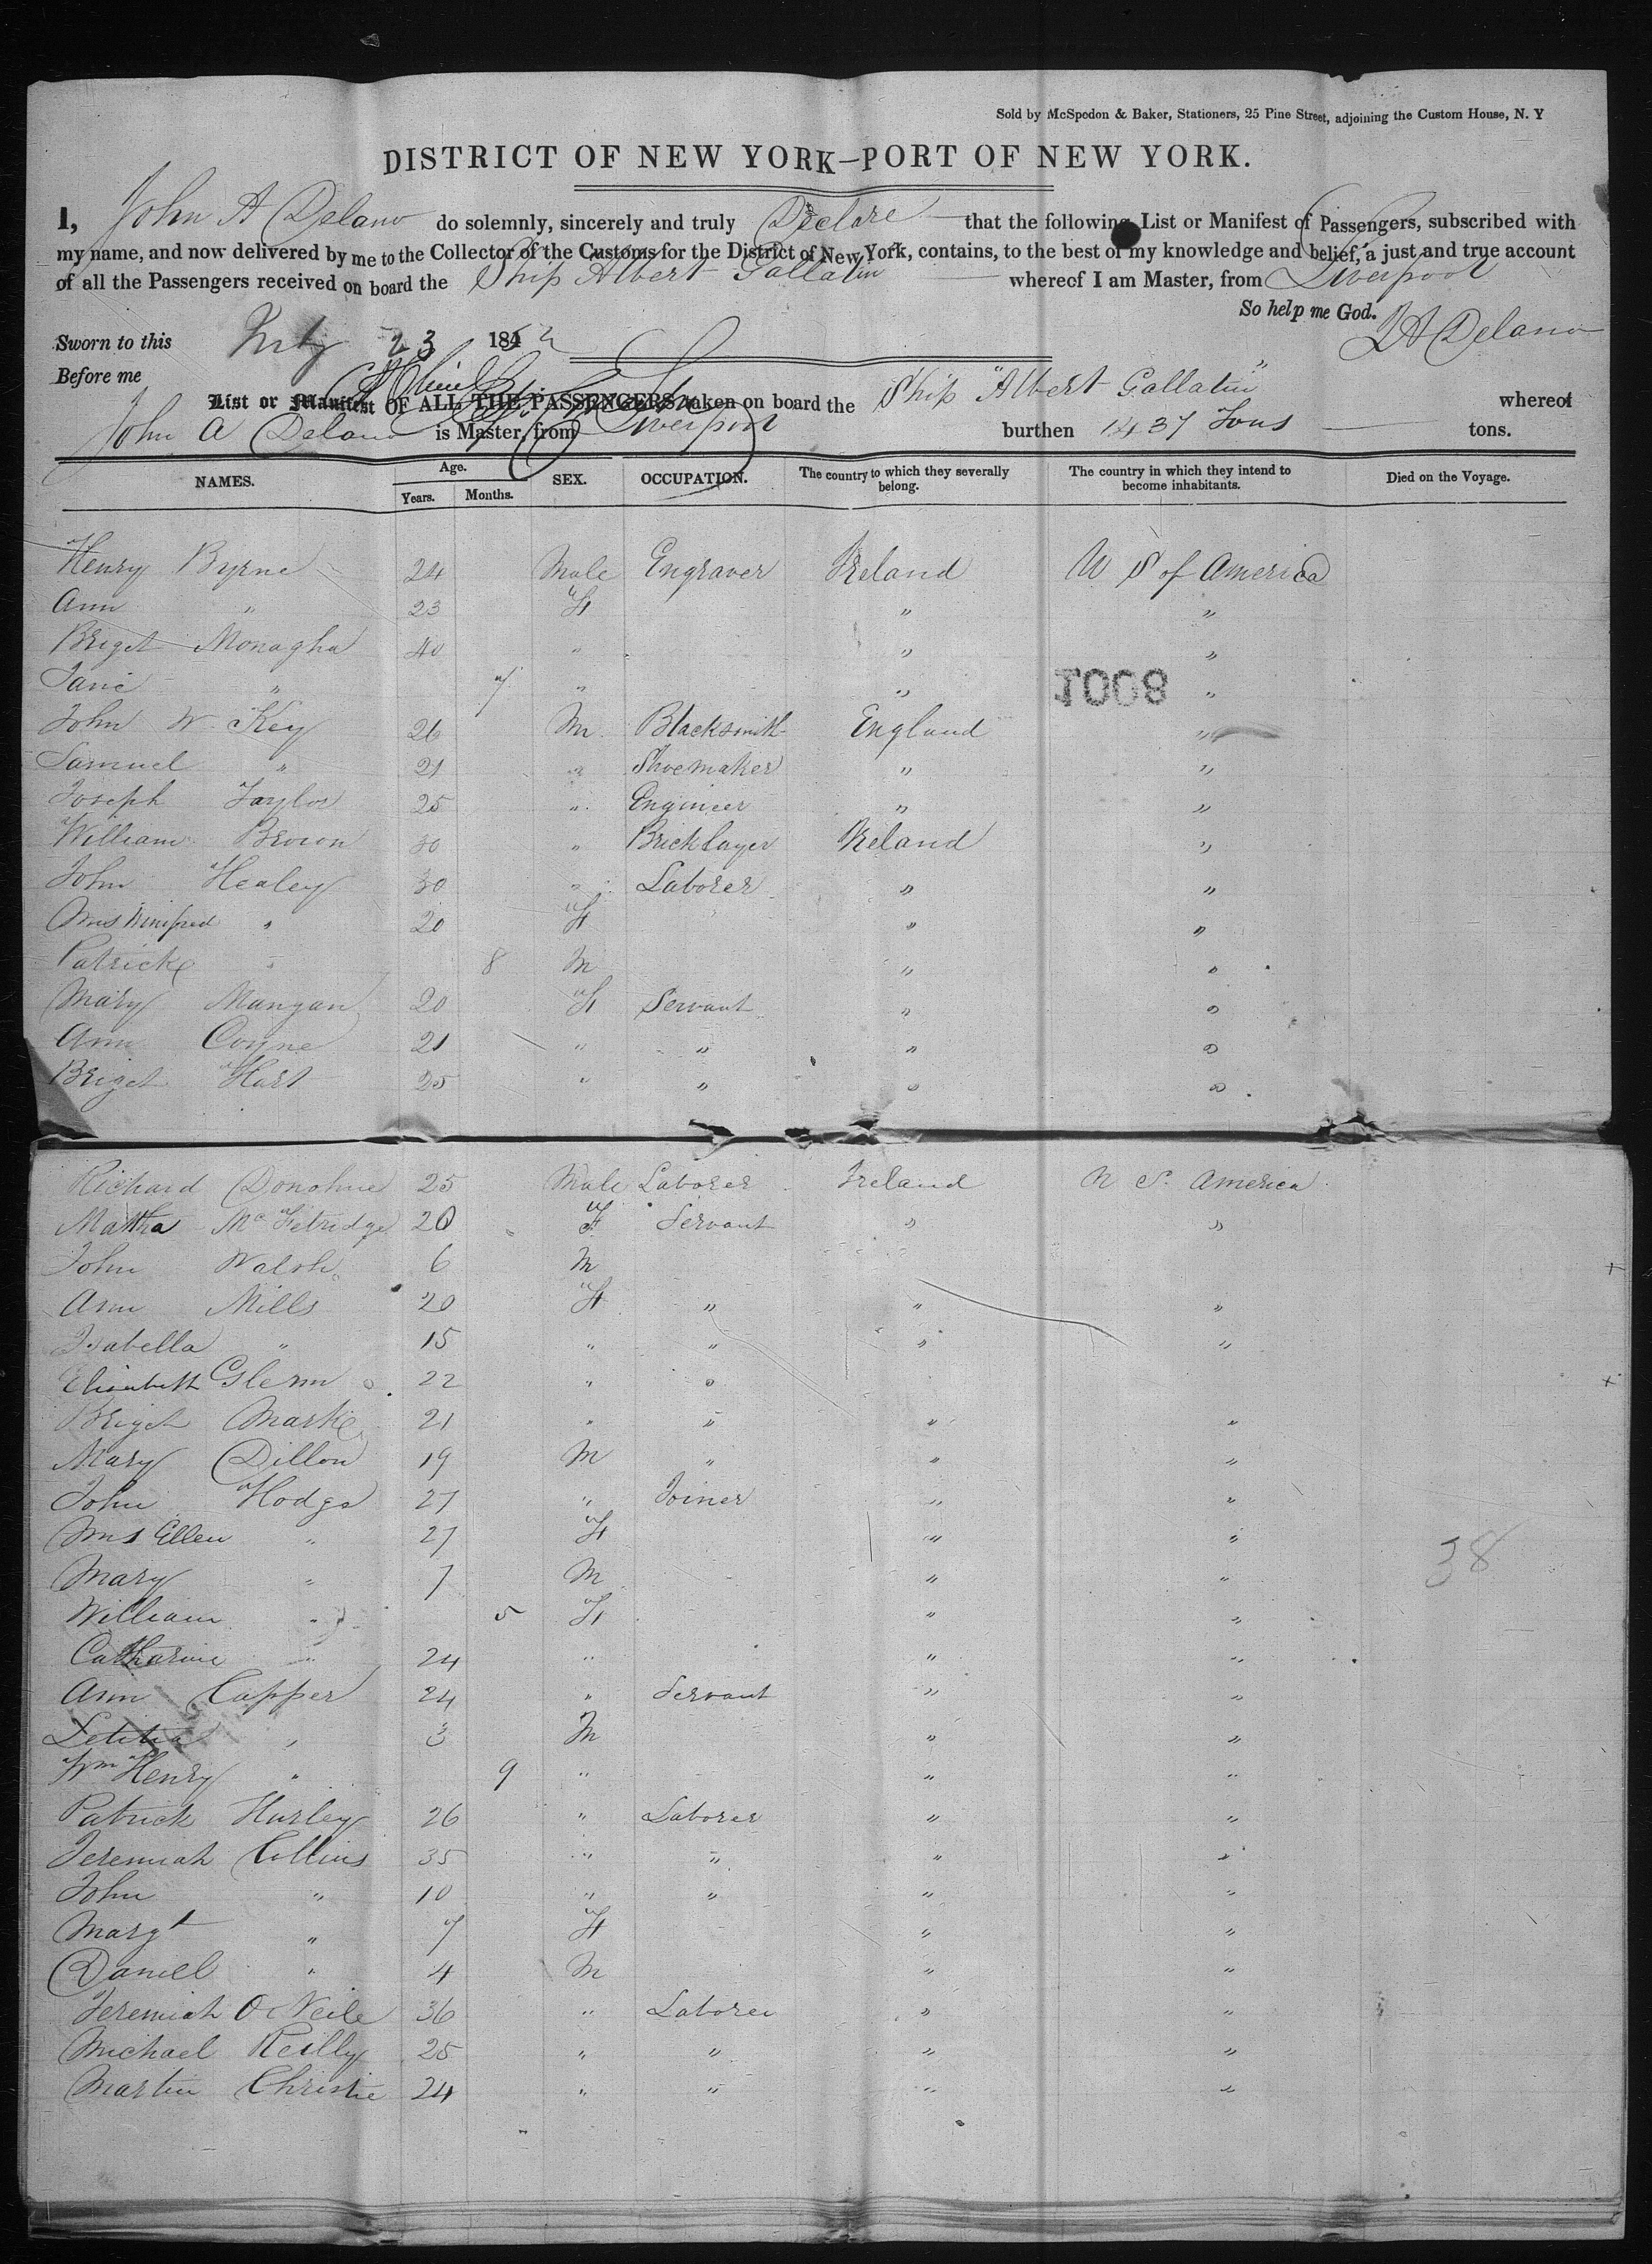 Sold by McSpedon & Baker, Stationers, 25 Pine Street, adjoining the Custom House, N. Y
DISTRICT OF NEW YORK—PORT OF NEW YORK.
I, John A Delano do solemnly, sincerely and truly Declare that the following List or Manifest of Passengers, subscribed with
my name, and now delivered by me to the Collector of the Customs for the District of New York, contains, to the best of my knowledge and belief, a just and true account
of all the Passengers received on board the Ship Albert Gallatin whereof I am Master, from Liverpool
So help me God.
Sworn to this July 23 1852 JA Delano
Before me
List or Manifest OF ALL THE PASSENGERS taken on board the Ship "Albert Gallatin" whereof
John A Delano is Master, from Liverpool burthen 1437 Tons tons.
NAMES. Age. Years. Months. SEX. OCCUPATION. The country to which they severally belong. The country in which they intend to become inhabitants. Died on the Voyage.
Henry Byrne 24 Male Engraver Ireland U S of America
Ann " 23 F " "
Briget Monagha 40 " " "
Jane " 7 " " 1008 "
John W. Key 26 M. Blacksmith England "
Samuel " 21 " Shoemaker " "
Joseph Taylor 25 " Engineer " "
William Brown 30 " Bricklayer Ireland "
John Healey 30 " Laborer " "
Mrs Winifred " 20 F " "
Patrick " 8 M " "
Mary Mangan 20 F Servant " "
Ann Coyne 21 " " " "
Briget Hart 25 " " " "
Richard Donohue 25 Male Laborer Ireland U S. America
Martha McFetridge 20 F Servant " "
John Walsh 6 M
Ann Mills 20 F " " "
Isabella " 15 " " " "
Elisabeth Glenn 22 " "
Briget Marke 21 " " " "
Mary Dillon 19 M " " "
John Hodgs 27 " Joiner " "
Mrs Ellen " 27 F " "
Mary " 7 M " " 38
William " 5 F " "
Catharine " 24 " " "
Ann Capper 24 " Servant " "
Letitia " 3 M " "
Wm Henry " 9 " " "
Patrick Hurley 26 " Laborer " "
Jeremiah Collins 35 " " " "
John " 10 " " " "
Margt " 7 F " "
Daniel " 4 M " "
Jeremiah O Neile 36 " Laborer " "
Michael Reilly 25 " " " "
Martin Christie 24 " " " "